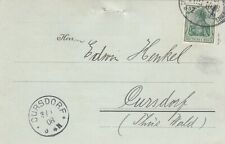 Herrn
Edwin Henkel
Cursdorf
(Thür. Wald)
CURSDORF